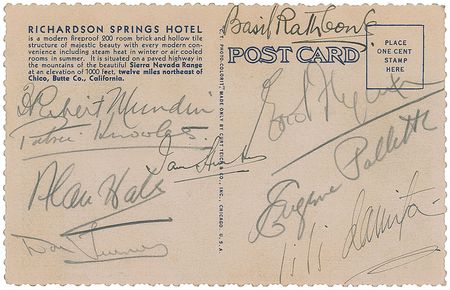 RICHARDSON SPRINGS HOTEL
is a modern fireproof 200 room brick and hollow tile
structure of majestic beauty with every modern con-
venience including steam heat in winter or air cooled
rooms in summer. It is situated on a paved highway in
the mountains of the beautiful Sierra Nevada Range
at an elevation of 1000 feet, twelve miles northeast of
Chico, Butte Co., California.
Herbert Mundin
Patric Knowles
Alan Hale
Don Turner
Ian Hunter
"C.T. PHOTO-COLORIT" MADE ONLY BY CURT TEICH & CO., INC., CHICAGO, U.S.A.
Basil Rathbone
POST CARD
PLACE
ONE CENT
STAMP
HERE
Errol Flynn
Eugene Pallette
Lili Damita